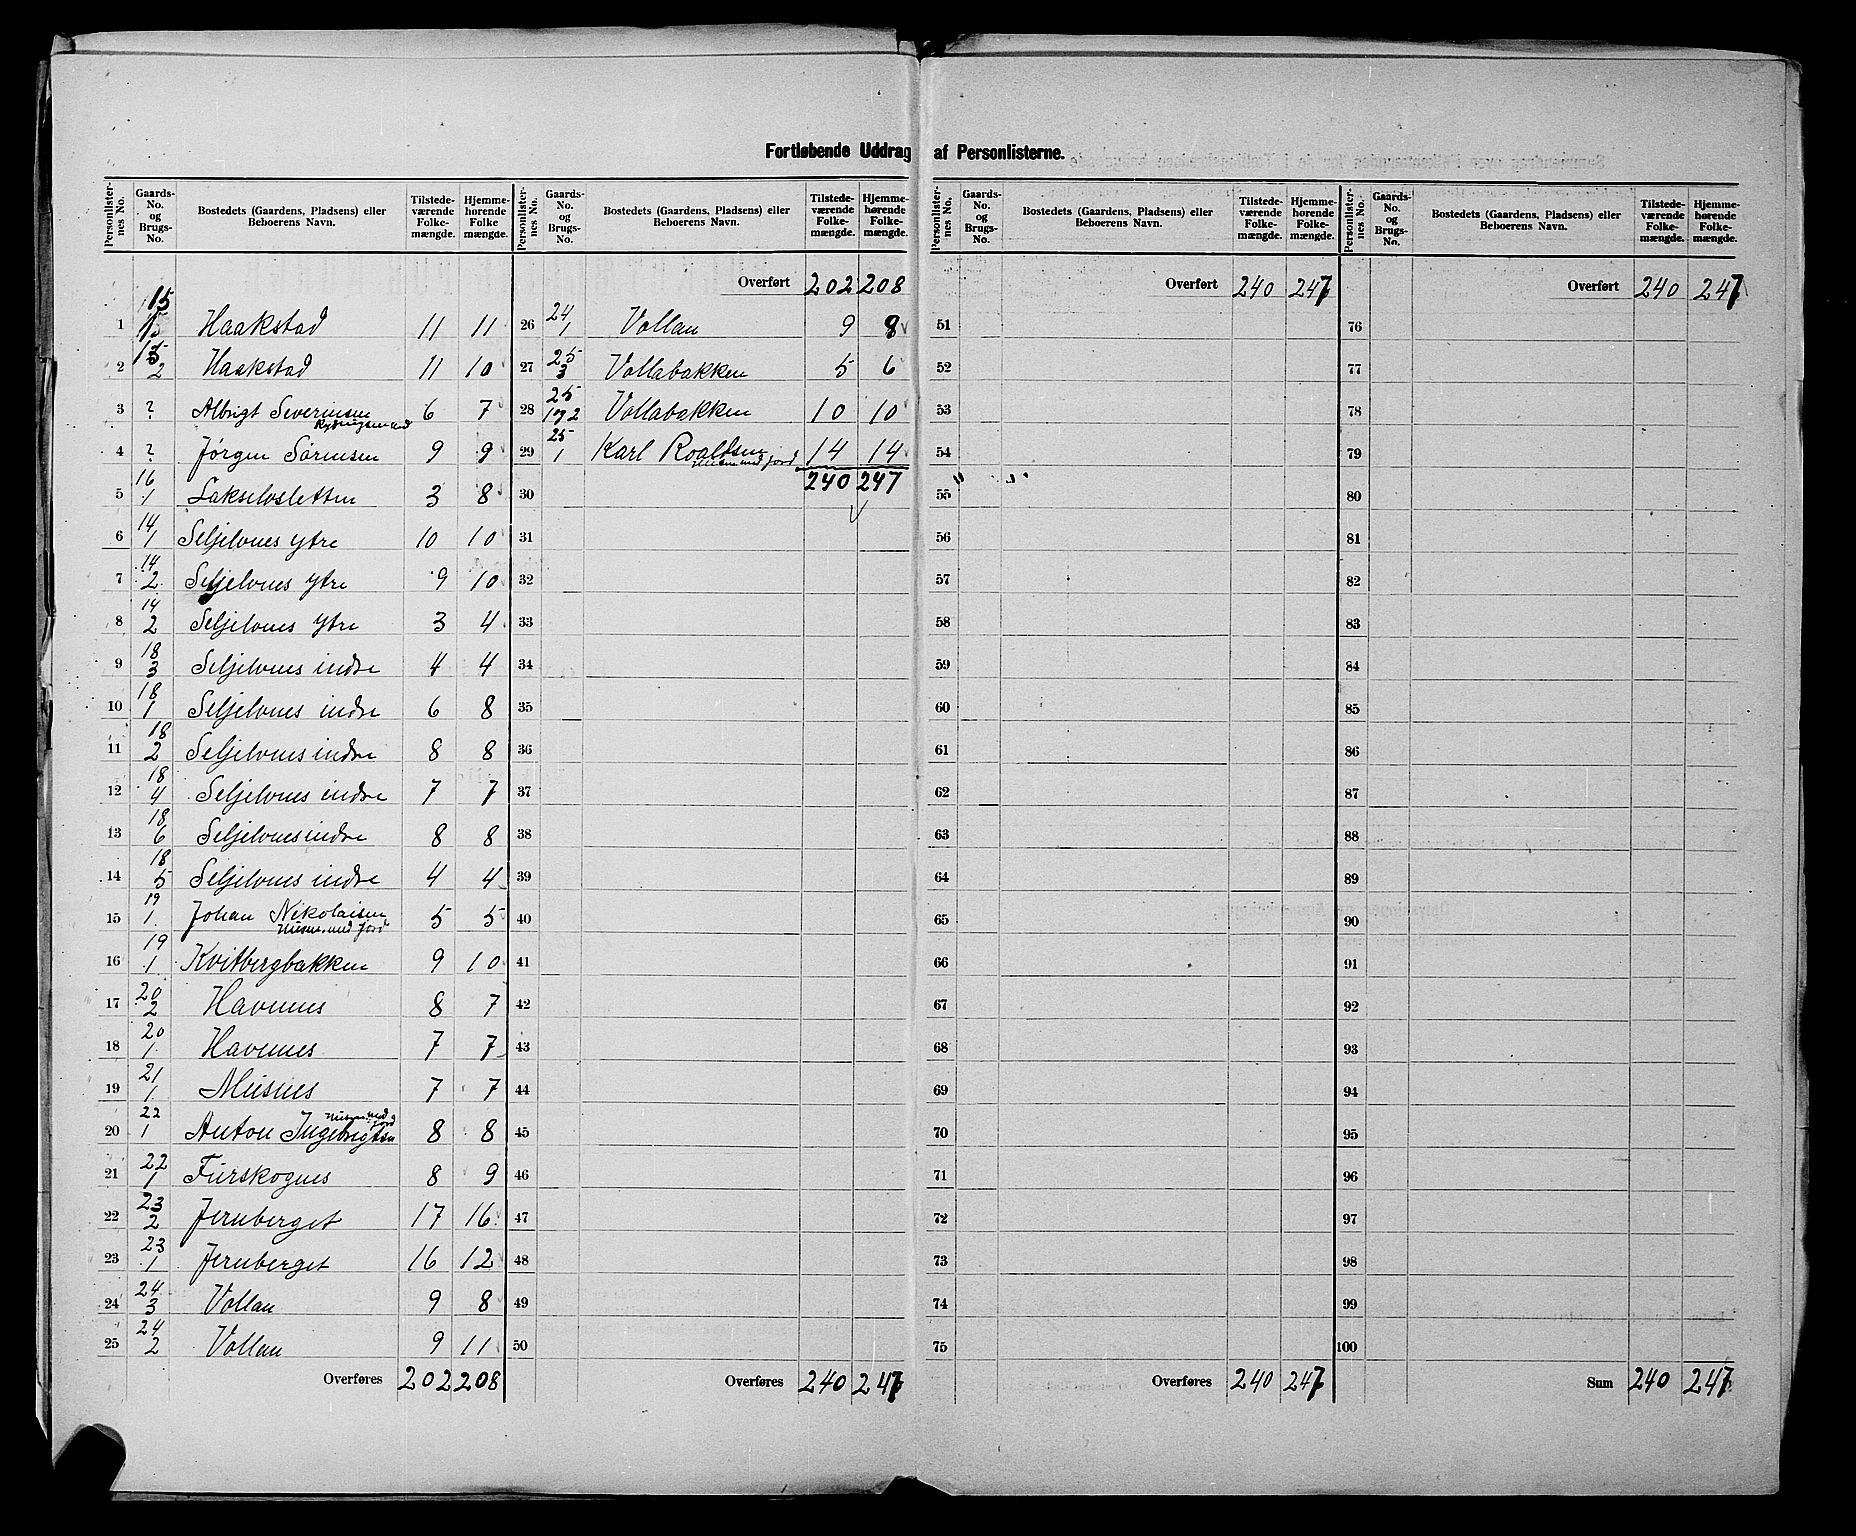 Fortløbende Uddrag af Personlisterne.
Personlister-nes No. | Gaards-No. og Brugs-No. | Bostedets (Gaardens, Pladsens) eller Beboerens Navn. | Tilstede-værende Folke-mængde. | Hjemme-hørende Folke mængde.
1 | 15 15 | Haakstad | 11 | 11
2 | 15 2 | Haakstad | 11 | 10
3 | ? | Albrigt Severinsen | 6 | 7
4 | ? | Jørgen Sørensen | 9 | 9
5 | 16 1 | Lakselvsletten | 3 | 8
6 | 14 1 | Seljelvnes ytre | 10 | 10
7 | 14 2 | Seljelvnes ytre | 9 | 10
8 | 14 2 | Seljelvnes ytre | 3 | 4
9 | 18 3 | Seljelvnes indre | 4 | 4
10 | 18 1 | Seljelvnes indre | 6 | 8
11 | 18 2 | Seljelvnes indre | 8 | 8
12 | 18 4 | Seljelvnes indre | 7 | 7
13 | 18 6 | Seljelvnes indre | 8 | 8
14 | 18 5 | Seljelvnes indre | 4 | 4
15 | 19 1 | Johan Nikolaisen Husm. med jord | 5 | 5
16 | 19 1 | Kvitbergbakken | 9 | 10
17 | 20 2 | Havnnes | 8 | 7
18 | 20 1 | Havnnes | 7 | 7
19 | 21 1 | Musnes | 7 | 7
20 | 22 1 | Anton Ingebrigtsn Husm. med jord | 8 | 8
21 | 22 1 | Furskognes | 8 | 9
22 | 23 2 | Jernberget | 17 | 16
23 | 23 1 | Jernberget | 16 | 12
24 | 24 3 | Vollan | 9 | 8
25 | 24 2 | Vollan | 9 | 11
Overføres | 202 | 208
Personlister-nes No. | Gaards-No. og Brugs-No. | Bostedets (Gaardens, Pladsens) eller Beboerens Navn. | Tilstede-værende Folke-mængde. | Hjemme-hørende Folke-mængde.
Overført | 202 | 208
26 | 24 1 | Vollan | 9 | 8
27 | 25 3 | Vollabakken | 5 | 6
28 | 25 1 og 2 | Vollabakken | 10 | 10
29 | 25 1 | Karl Roaldsen Husm med jord | 14 | 14
30 | 240 | 247
31
32
33
34
35
36
37
38
39
40
41
42
43
44
45
46
47
48
49
50
Overføres | 240 | 247
Personlister-nes No. | Gaards-No. og Brugs-No. | Bostedets (Gaardens, Pladsens) eller Beboerens Navn. | Tilstede-værende Folke-mængde. | Hjemme-hørende Folke-mængde.
Overført | 240 | 247
51
52
53
54
55
56
57
58
59
60
61
62
63
64
65
66
67
68
69
70
71
72
73
74
75
Overføres | 240 | 247
Personlister-nes No. | Gaards-No. og Brugs-No. | Bostedets (Gaardens, Pladsens) eller Beboerens Navn. | Tilstede-værende Folke-mængde. | Hjemme-hørende Folke-mængde.
Overført | 240 | 247
76
77
78
79
80
81
82
83
84
85
86
87
88
89
90
91
92
93
94
95
96
97
98
99
100
Sum | 240 | 247